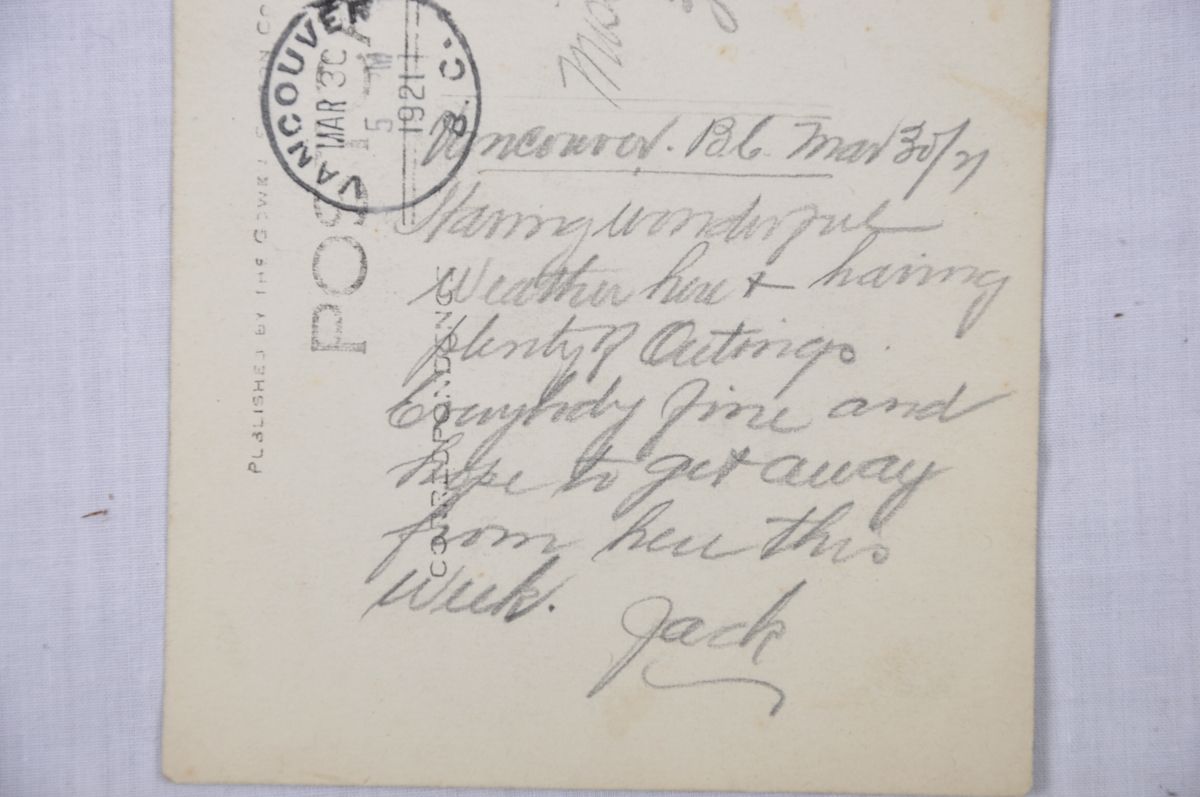 VANCOUVER B.C.
MAR 30
5 M
1921
POST
CORRESPONDENCE
PUBLISHED BY THE GOWEN
Vancouver. B.C. Mar 30/21
Having wonderful
Weather here + having
plenty of Outings
Everybody fine and
hope to get away
from here this
Week.
Jack